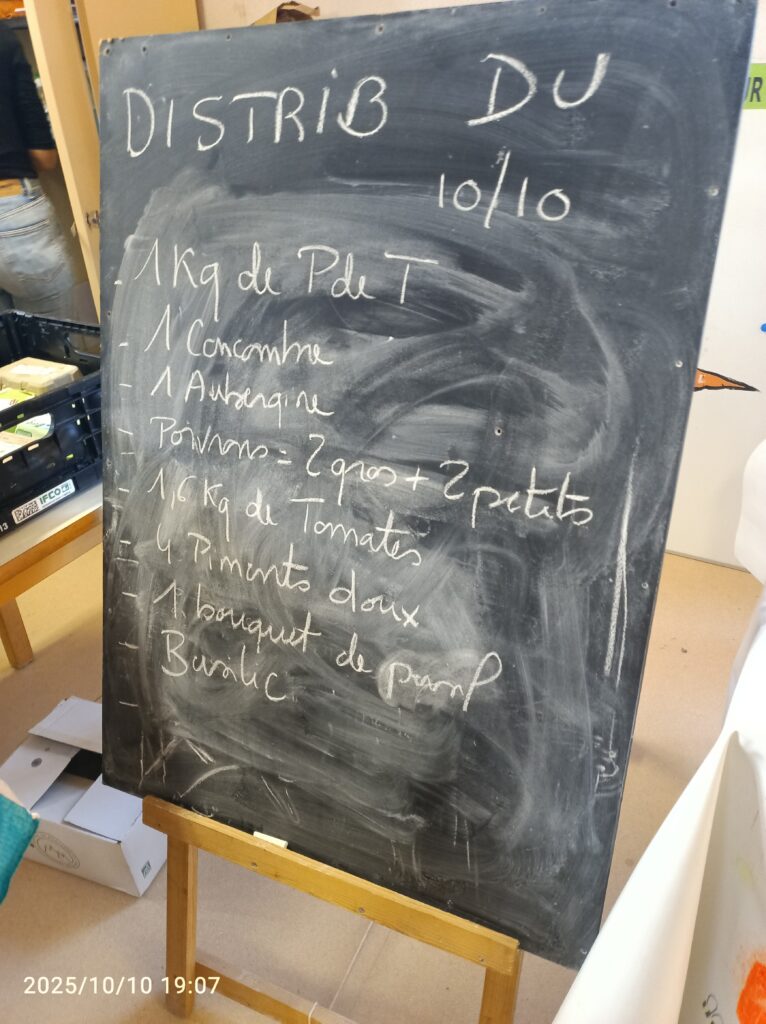 DISTRIB DU
10/10
- 1 Kg de P de T
- 1 Concombre
- 1 Aubergine
- Poivrons = 2 gros + 2 petits
- 1,6 Kg de Tomates
- 4 Piments doux
- 1 bouquet de persil
- Basilic
-
IFCO
UR
13
2025/10/10 19:07